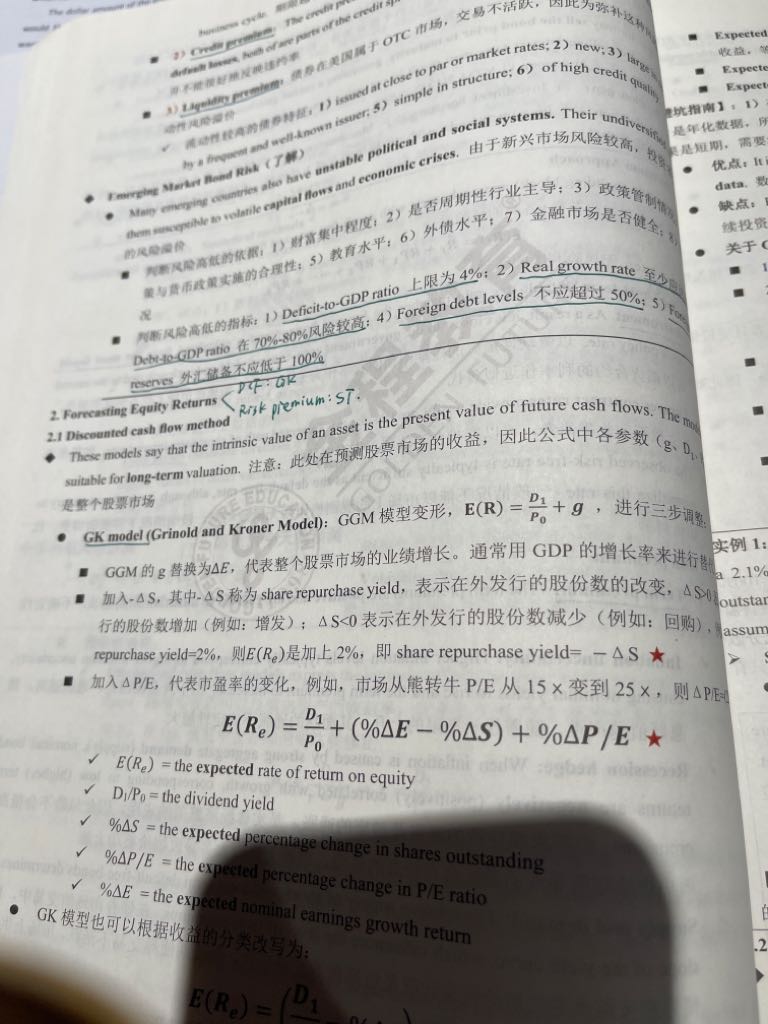 The dollar amount of the
business cycle.
2) Credit premium: The credit
default losses, both of are parts of the credit
并不能很好地反映违约率
3) Liquidity premium: 债券在美国属于 OTC 市场，交易不活跃，因此为弥补这种
动性风险溢价
✓ 流动性较高的债券特征：1) issued at close to par or market rates; 2) new; 3) large
by a frequent and well-known issuer; 5) simple in structure; 6) of high credit quality
Emerging Market Bond Risk（了解）
Many emerging countries also have unstable political and social systems. Their undiversified
them susceptible to volatile capital flows and economic crises. 由于新兴市场风险较高，投资
的风险溢价
判断风险高低的依据：1）财富集中程度；2）是否周期性行业主导；3）政策管制情况
策与货币政策实施的合理性；5）教育水平；6）外债水平；7）金融市场是否健全；
况
判断风险高低的指标：1) Deficit-to-GDP ratio 上限为 4%；2) Real growth rate 至少
Debt-to-GDP ratio 在 70%-80%风险较高；4) Foreign debt levels 不应超过 50%；5)
reserves 外汇储备不应低于 100%
2. Forecasting Equity Returns
DCF: GK
Risk premium: ST.
2.1 Discounted cash flow method
These models say that the intrinsic value of an asset is the present value of future cash flows. The
suitable for long-term valuation. 注意：此处在预测股票市场的收益，因此公式中各参数（g、D₁、
是整个股票市场
GK model (Grinold and Kroner Model)：GGM 模型变形，E(R) = D₁/P₀ + g ，进行三步调整：
GGM 的 g 替换为ΔE，代表整个股票市场的业绩增长。通常用 GDP 的增长率来进行替代
加入-ΔS，其中-ΔS 称为 share repurchase yield，表示在外发行的股份数的改变，ΔS>0
行的股份数增加（例如：增发）；ΔS<0 表示在外发行的股份数减少（例如：回购），
repurchase yield=2%，则E(Rₑ)是加上 2%，即 share repurchase yield= －ΔS ★
加入ΔP/E，代表市盈率的变化，例如，市场从熊转牛 P/E 从 15×变到 25×，则ΔP/E=
E(Rₑ) = D₁/P₀ + (%ΔE − %ΔS) + %ΔP/E ★
✓ E(Rₑ) = the expected rate of return on equity
✓ D₁/P₀ = the dividend yield
✓ %ΔS = the expected percentage change in shares outstanding
✓ %ΔP/E = the expected percentage change in P/E ratio
✓ %ΔE = the expected nominal earnings growth return
GK 模型也可以根据收益的分类改写为：
E(Rₑ) = (D₁
Expected
收益，
Expecte
Expect
坑指南】：1）
是年化数据，
是短期，需要
优点：It i
data. 数
缺点：
续投资
关于
实例 1：
a 2.1%
outstan
assum
.2